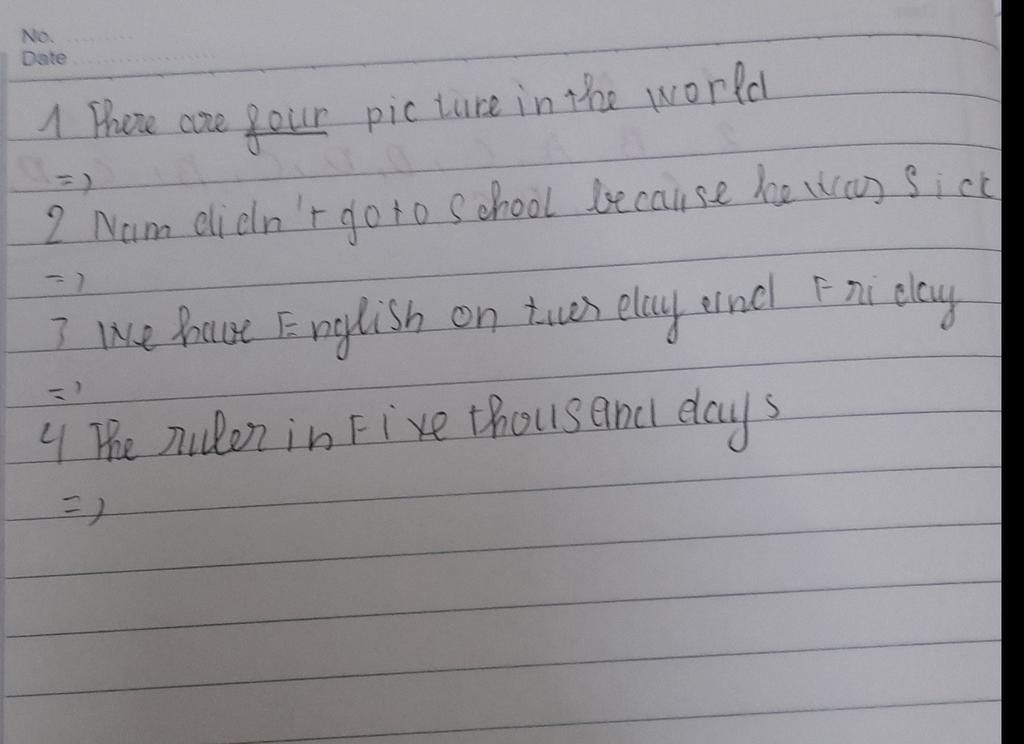 No.
Date
1 There are four picture in the world
=>
2 Nam didn't go to school because he was sick
=>
3 We have English on tuesday and Friday
=>
4 The ruler in Five thousand days
=>